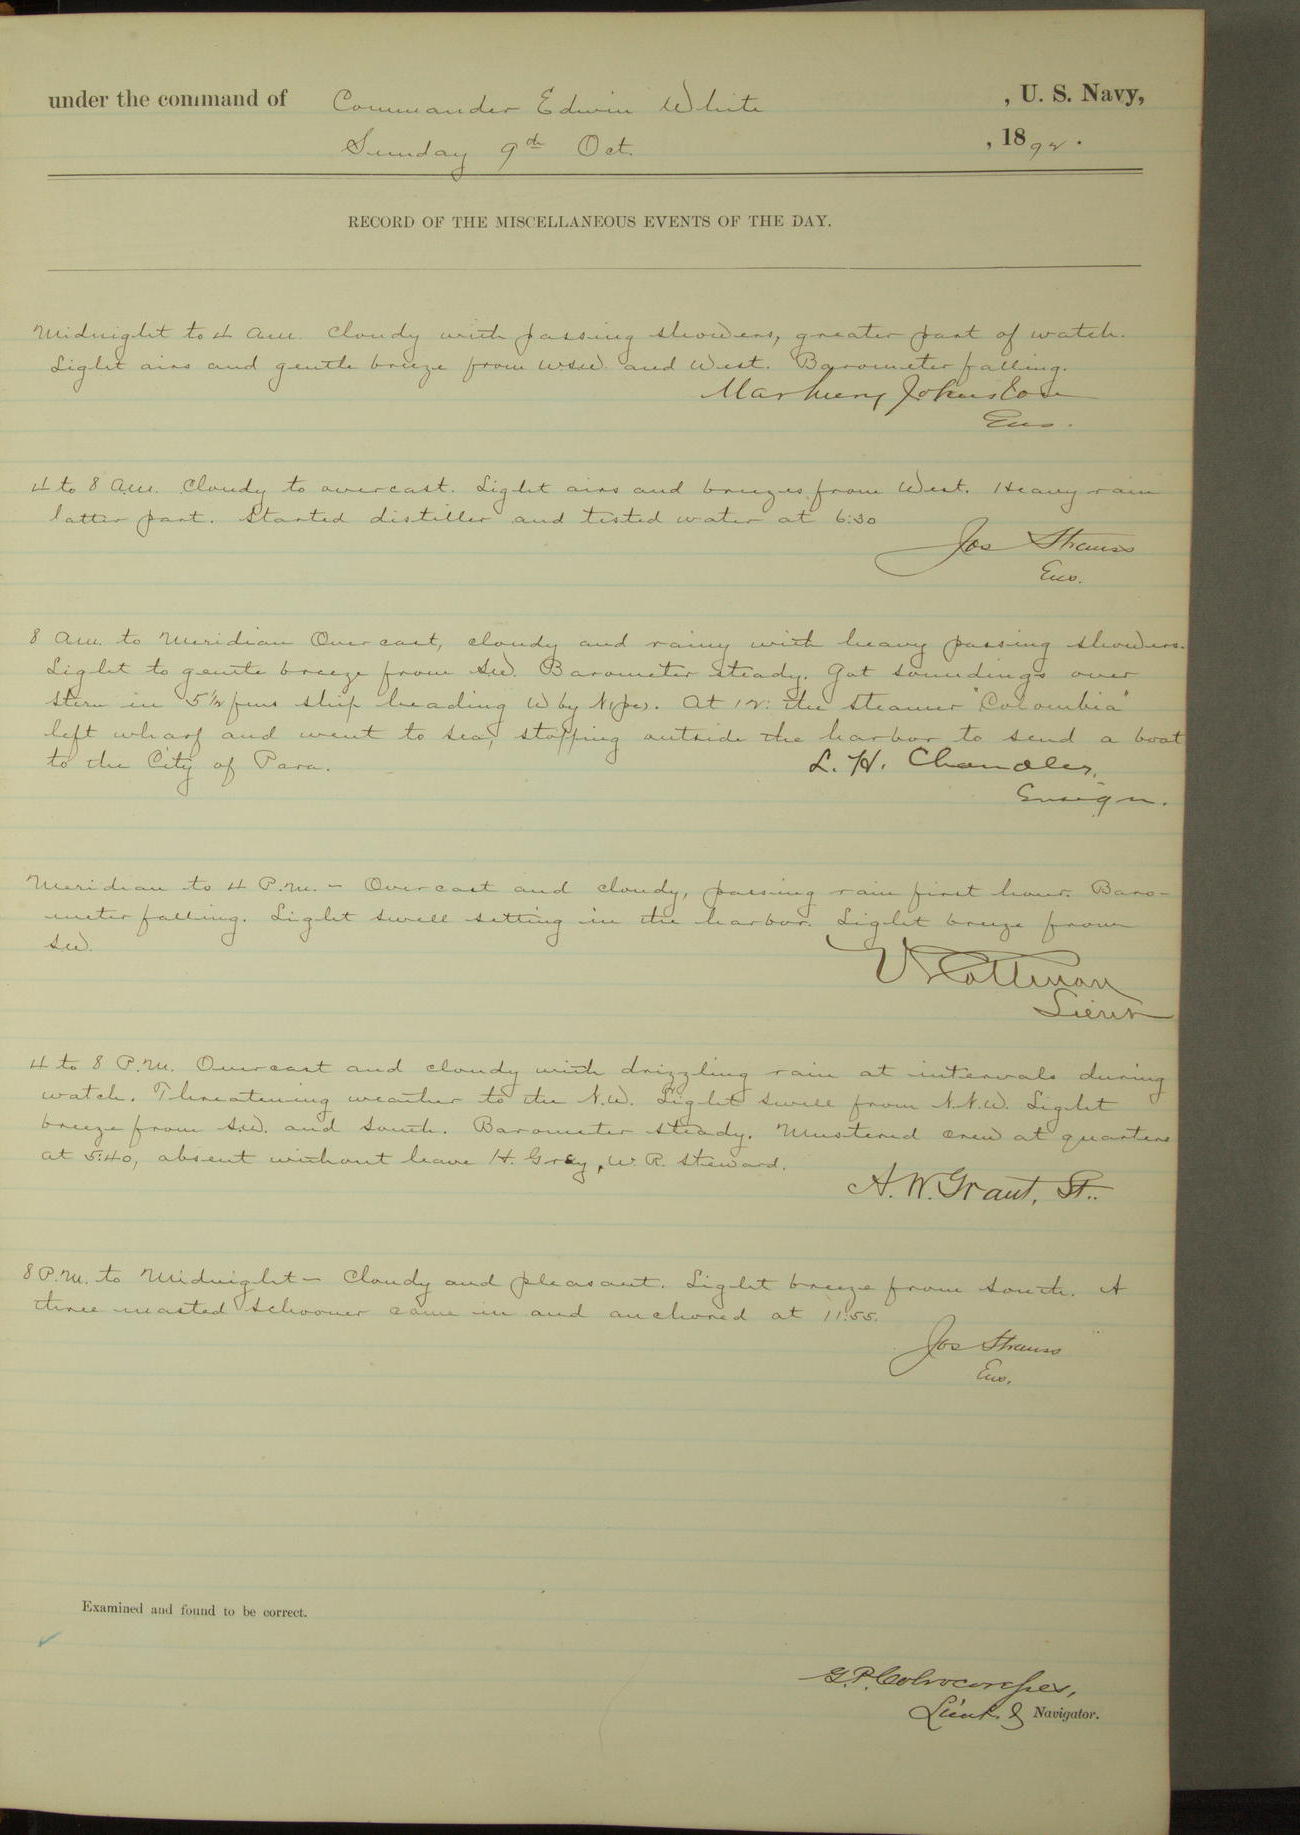 under the command of Commander Edwin White , U. S. Navy,
Sunday 9th Oct. , 1892.
RECORD OF THE MISCELLANEOUS EVENTS OF THE DAY.
Midnight to 4 a.m. Cloudy with passing showers, greater part of watch.
Light airs and gentle breeze from WSW. and West. Barometer falling.
Marbury Johnston
Ens.
4 to 8 a.m. Cloudy to overcast. Light airs and breezes from West. Heavy rain
latter part. Started distiller and tested water at 6:30
Jos Strauss
Ens.
8 a.m. to Meridian Overcast, cloudy and rainy with heavy passing showers.
Light to gentle breeze from SW. Barometer steady. Got soundings over
stern in 5½ fms ship heading W by N (pc). At 12: the steamer "Colombia"
left wharf and went to sea, stopping outside the harbor to send a boat
to the City of Para. L. H. Chandler,
Ensign.
Meridian to 4 P.M. - Overcast and cloudy, passing rain first hour. Baro-
meter falling. Light swell setting in the harbor. Light breeze from
S.W.
V. Cottman
Lieut
4 to 8 P.M. Overcast and cloudy with drizzling rain at intervals during
watch. Threatening weather to the N.W. Light swell from N.N.W. Light
breeze from S.W. and South. Barometer steady. Mustered crew at quarters
at 5:40, absent without leave H. Grey, W. R. Steward.
A. W. Grant, Lt..
8 P.M. to Midnight - Cloudy and pleasant. Light breeze from South. A
three masted schooner came in and anchored at 11:55.
Jos Strauss
Ens.
Examined and found to be correct.
G. P. Colvocoresses,
Lieut. & Navigator.